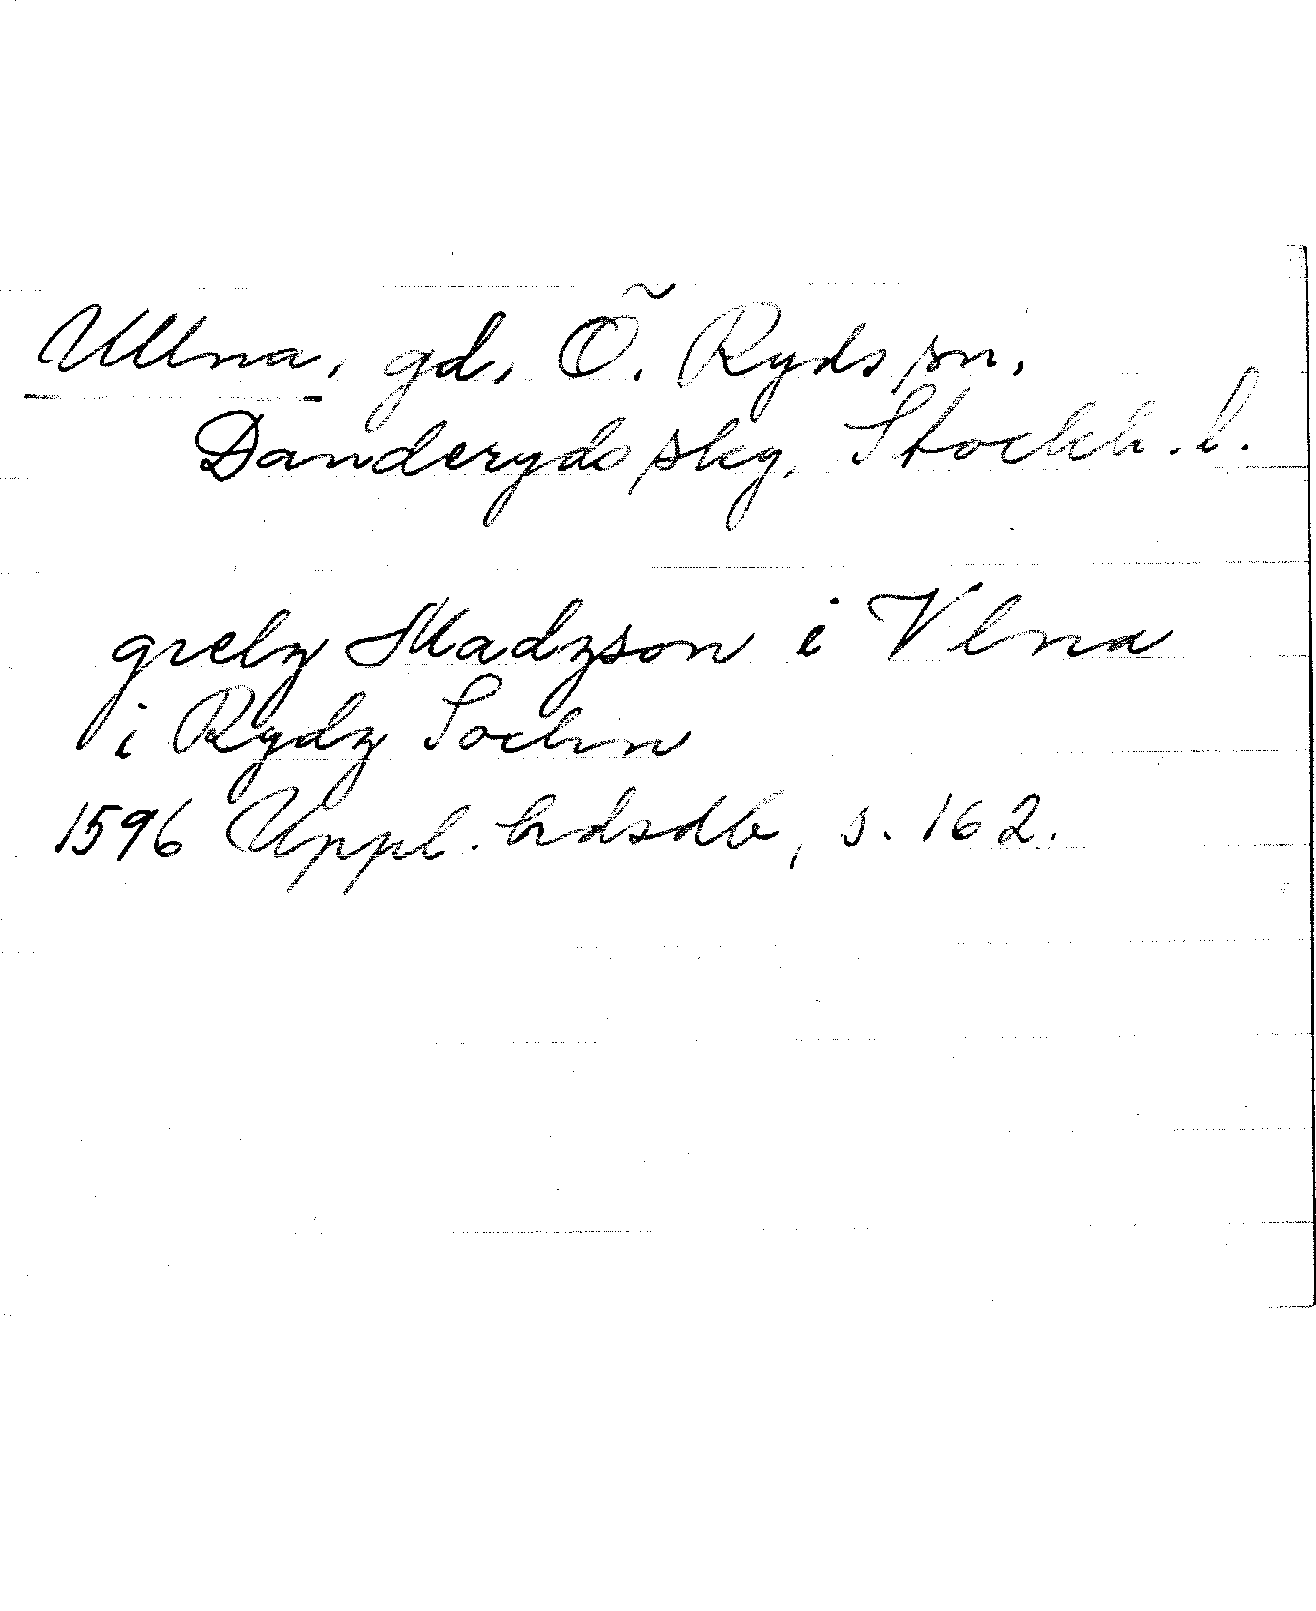 Ullna, gd, Ö. Ryds sn,
Danderyds skg, Stockh. l.
grelz Madzson i Vlna
i Rydz Sochn
1596 Uppl. hdsdb, s. 162.